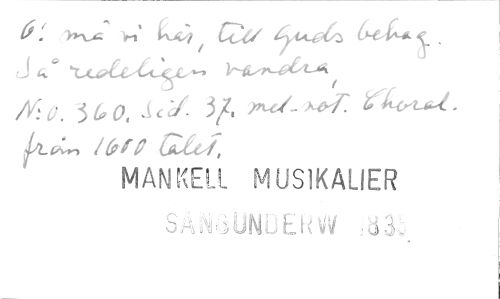 O! må vi här, till Guds behag.
Så redeligen vandra,
N:o. 360. Sid. 37. mel-not. Choral.
från 1600 talet.
MANKELL MUSIKALIER
SÅNGUNDERW 1835